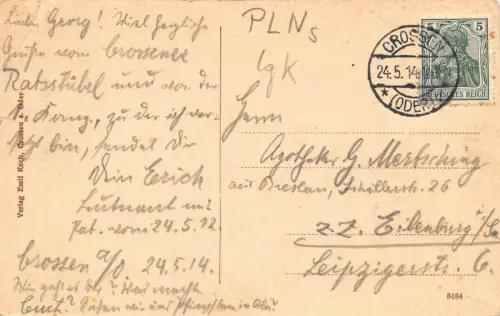 Lieber Georg! Viel herzliche
Grüße vom Crossener
Ratsstübel und von der
Komp., zu der ich ver-
setzt bin, sendet Dir
Dein Erich
Leutnant mit
Pat. vom 24.5.12.
Crossen a/O 24.5.14.
Wie geht es Dir? Was macht
Sehen wir uns Pfingsten in
Verlag Emil Koch, Crossen a. Oder
PLNs
CROSSEN
24.5.14
* (ODER)
5 5
DEUTSCHES REICH
Herrn
Apotheker G. Mertsching
aus Breslau, Schillerstr. 26
z.Z. Eilenburg i/Sa
Leipzigerstr. 6.
8484